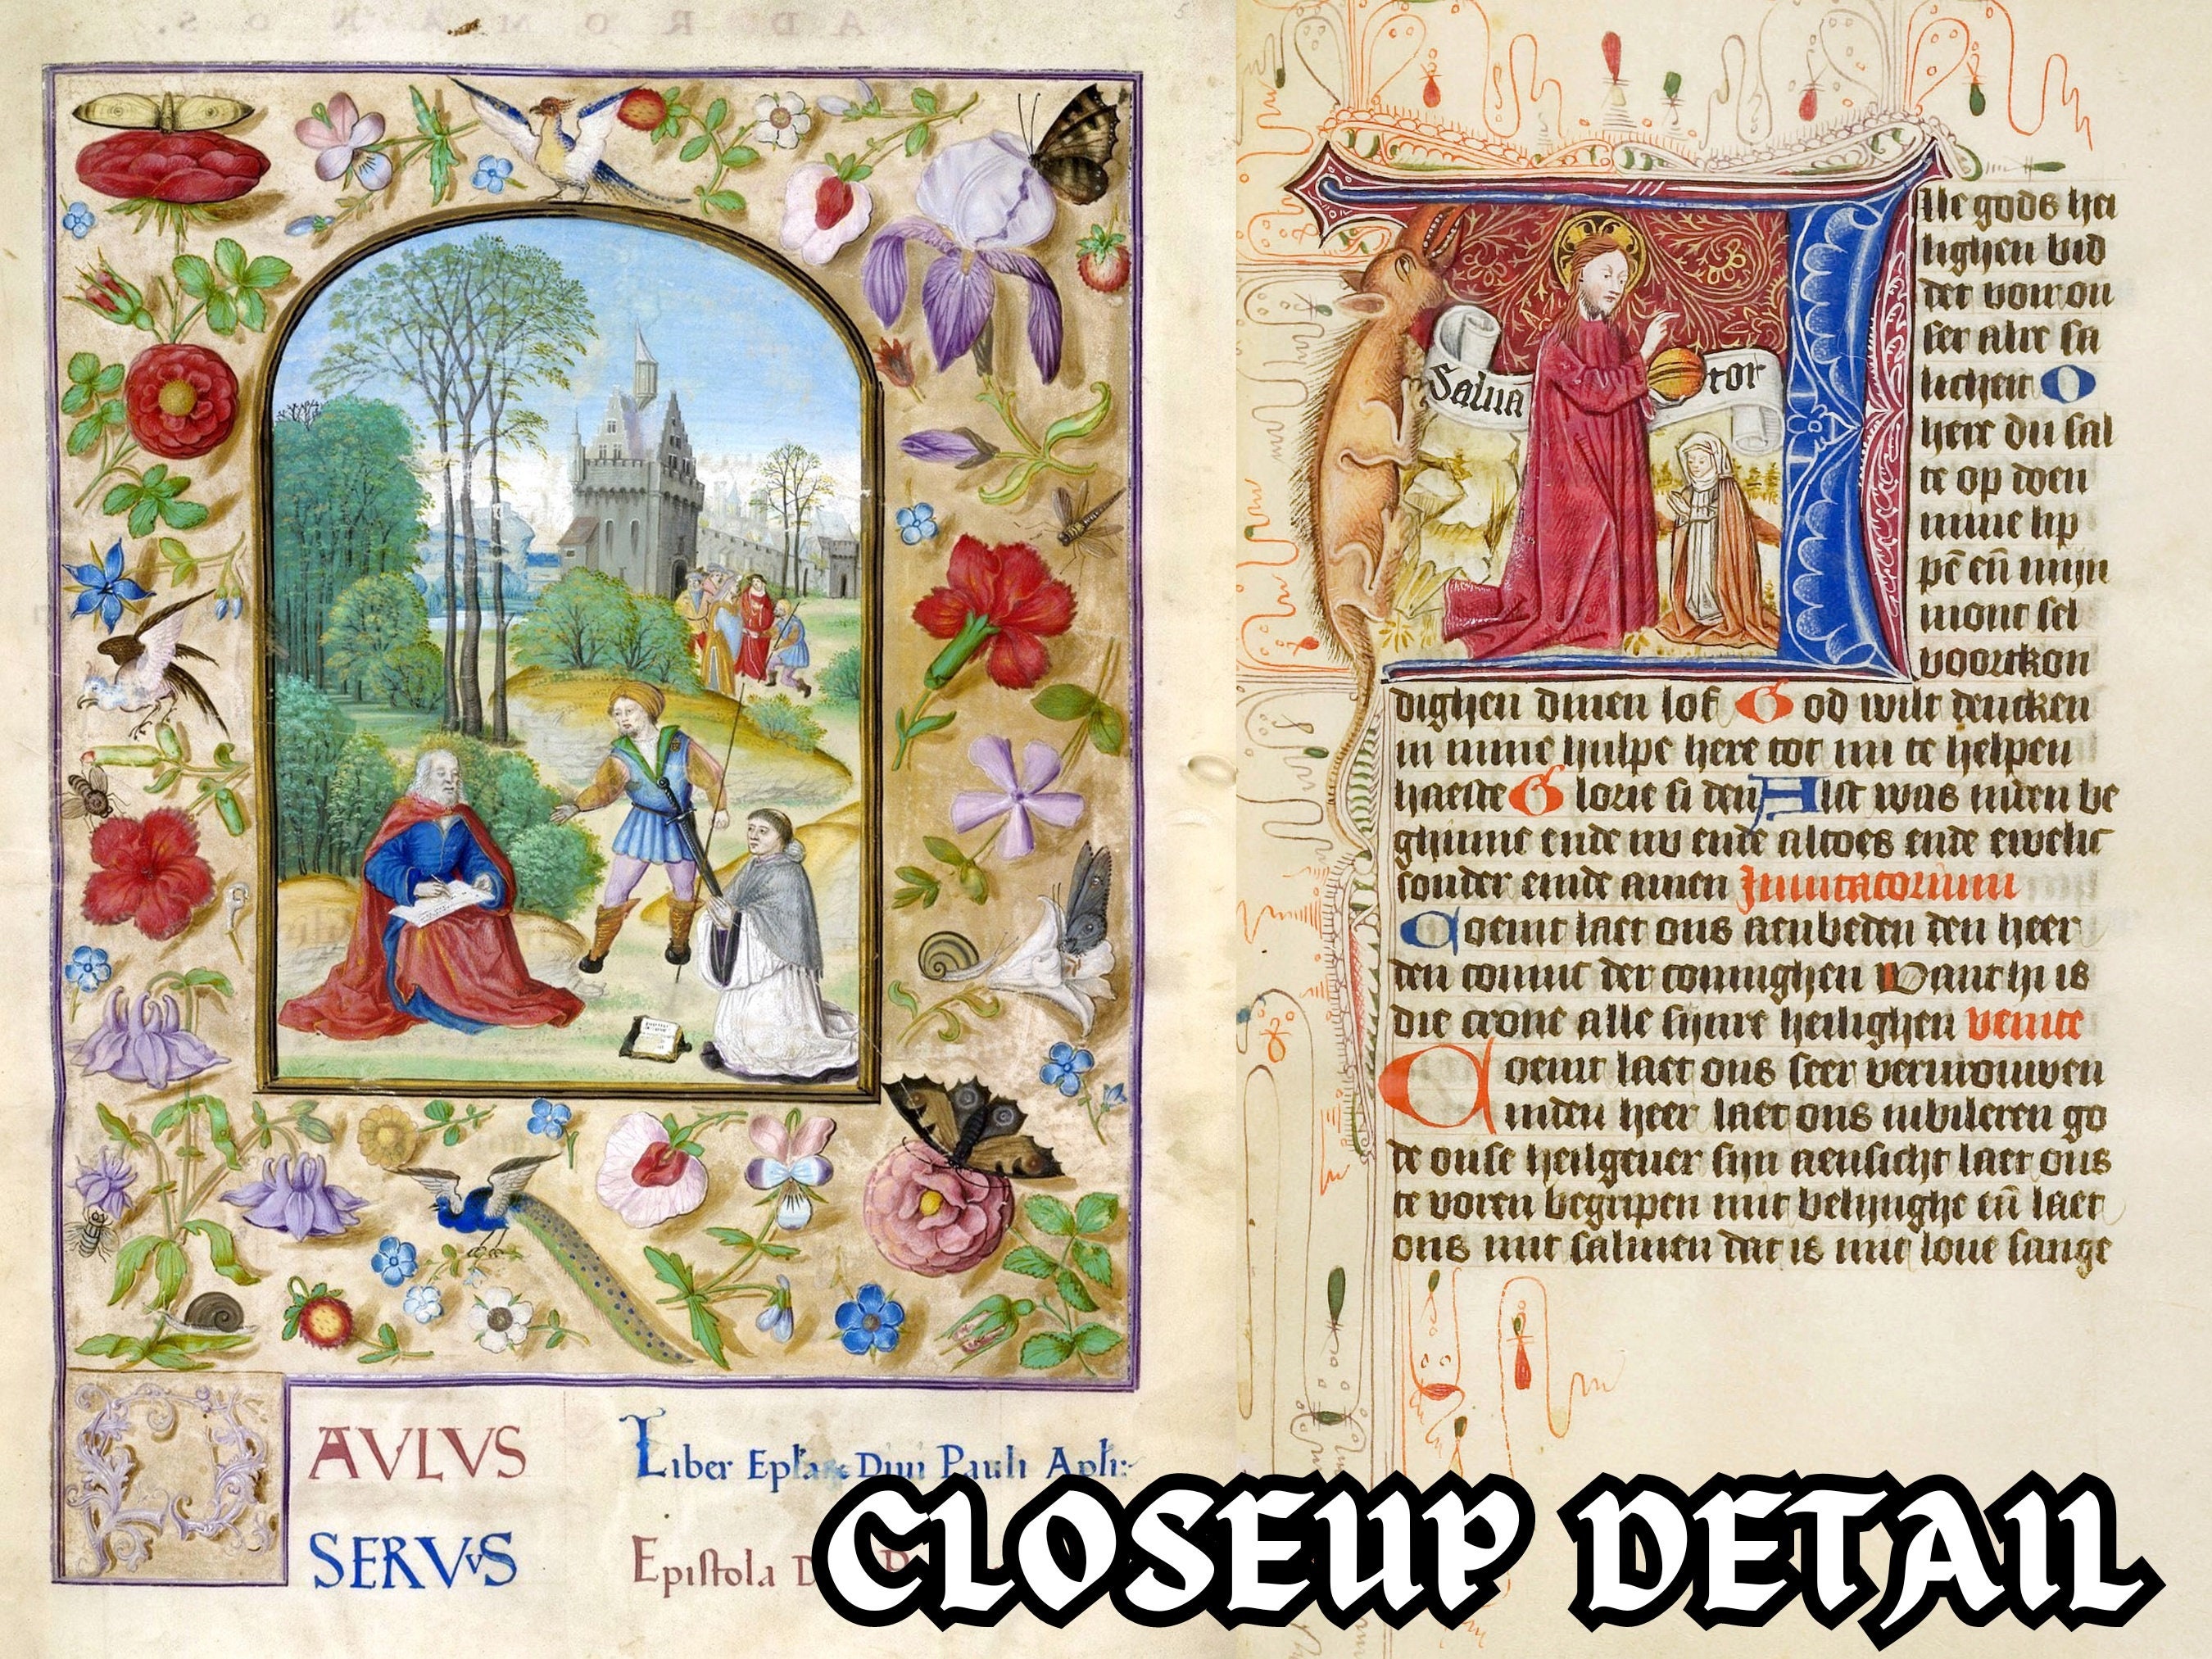 AVLVS
SERVVS
Liber Diui Pauli Apli:
Epistola
Salua tor
Alle gods hei
lighen bid
der voir on
ser alre sa
licheit O
here du sal
te op doen
mine lip
pē eñ mijn
mont sel
voortkon
dighen dinen lof God wilt dencken
in mine hulpe here tot mi te helpen
haeste Glorie si den Alst was inden be
ghinne ende nu ende altoes ende ewelic
sonder einde amen Inuitatorium
Coemt laet ons aenbeden den heer
den coninc der coninghen Want hi is
die crone alle sijnre heilighen venite
Coemt laet ons seer vervrouwen
inden heer laet ons iubileren go
de onse heilgeuer sijn aensicht laet ons
te voren begripen mit belijnghe eñ laet
ons mit salmen dat is mit loue sange
CLOSEUP DETAIL